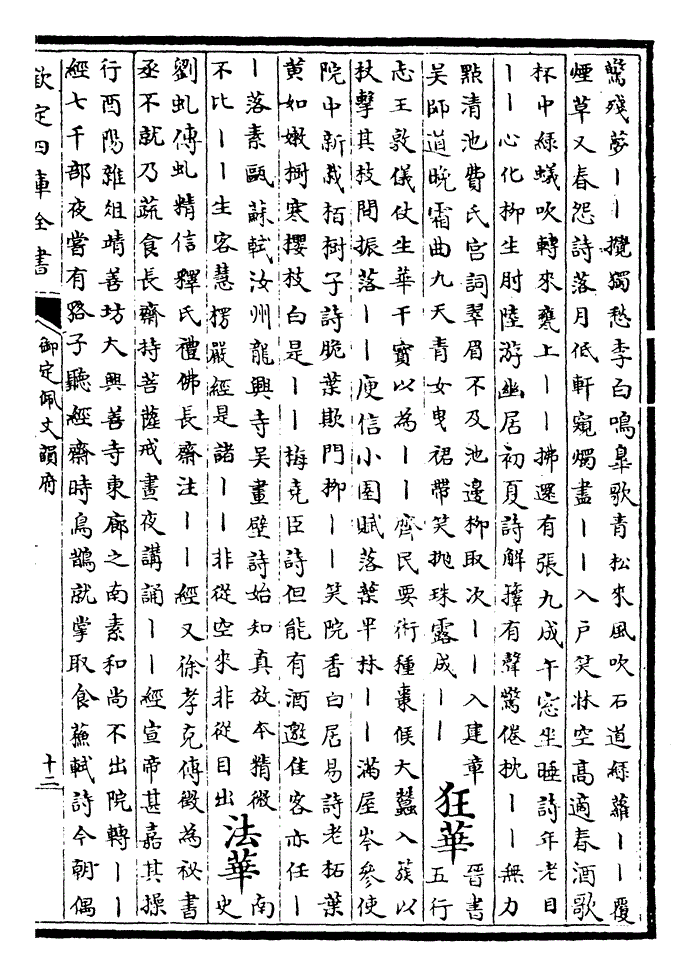 驚殘夢丨丨攪獨愁李白鳴臯歌青松來風吹石道綠蘿丨丨覆
煙草又春怨詩落月低軒窺燭盡丨丨入戶笑牀空高適春酒歌
杯中綠蟻吹轉來甕上丨丨拂還有張九成午窓坐睡詩年老目
丨丨心化柳生肘陸游幽居初夏詩解籜有聲驚倦枕丨丨無力
點清池費氏宫詞翠眉不及池邊柳取次丨丨入建章
吳師道晚霜曲九天青女曳裙帶笑抛珠露成丨丨
狂華
晉書
五行
志王敦儀仗生華干寶以為丨丨齊民要術種棗候大蠶入簇以
杖擊其枝間振落丨丨庾信小園賦落葉半牀丨丨滿屋岑參使
院中新栽栢樹子詩脆葉欺門柳丨丨笑院香白居易詩老柘葉
黄如嫩樹寒櫻枝白是丨丨梅堯臣詩但能有酒邀佳客亦任丨
丨落素甌蘇軾汝州龍興寺吳畫壁詩始知真放本精微
不比丨丨生客慧楞嚴經是諸丨丨非從空來非從目出
法華
南
史
劉虬傳虬精信釋氏禮佛長齋注丨丨經又徐孝克傳徵為祕書
丞不就乃蔬食長齋持菩薩戒晝夜講誦丨丨經宣帝甚嘉其操
行酉陽雜俎靖善坊大興善寺東廊之南素和尚不出院轉丨丨
經七千部夜嘗有貉子聽經齋時烏鵲就掌取食蘇軾詩今朝偶
欽定四庫全書
御定佩文韻府
十二